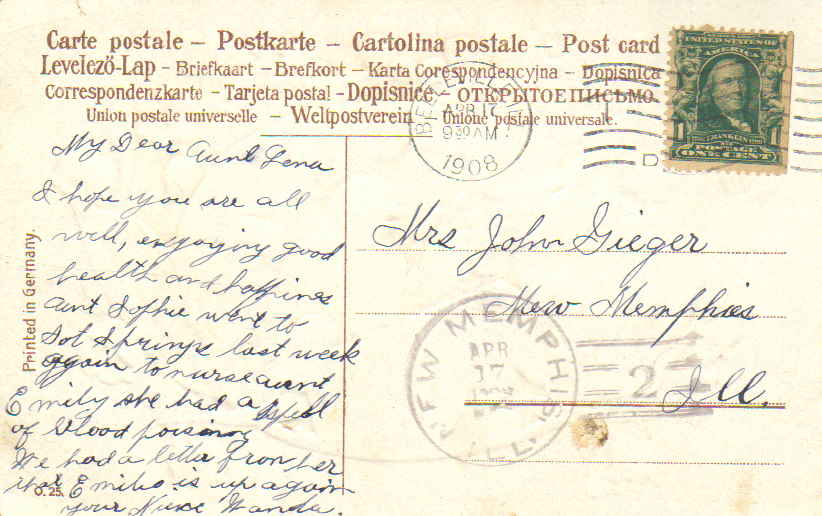 Carte postale – Postkarte – Cartolina postale – Post card
Levelező-Lap – Briefkaart – Brefkort – Karta Corespondencyjna – Dopisnica
Correspondenzkarte – Tarjeta postal – Dopisnice – ОТКРЫТОЕ ПИСЬМО.
Union postale universelle – Weltpostverein – Unione postale universale.
UNITED STATES OF
AMERICA
FRANKLIN
POSTAGE
1 ONE CENT
APR 17
9 30 AM
1908
My Dear Aunt Lena
I hope you are all
well, enjoying good
health and happines
aunt Sophie went to
Hot Springs last week
again to nurse aunt
Emily she had a spell
of blood poisoning
We had a letter from her
that Emily is up again
your Niece Wanda.
Mrs John Gieger
New Memphies
Ill.
NEW MEMPHIS
ILL.
APR
17
1908
2
Printed in Germany.
O. 25.